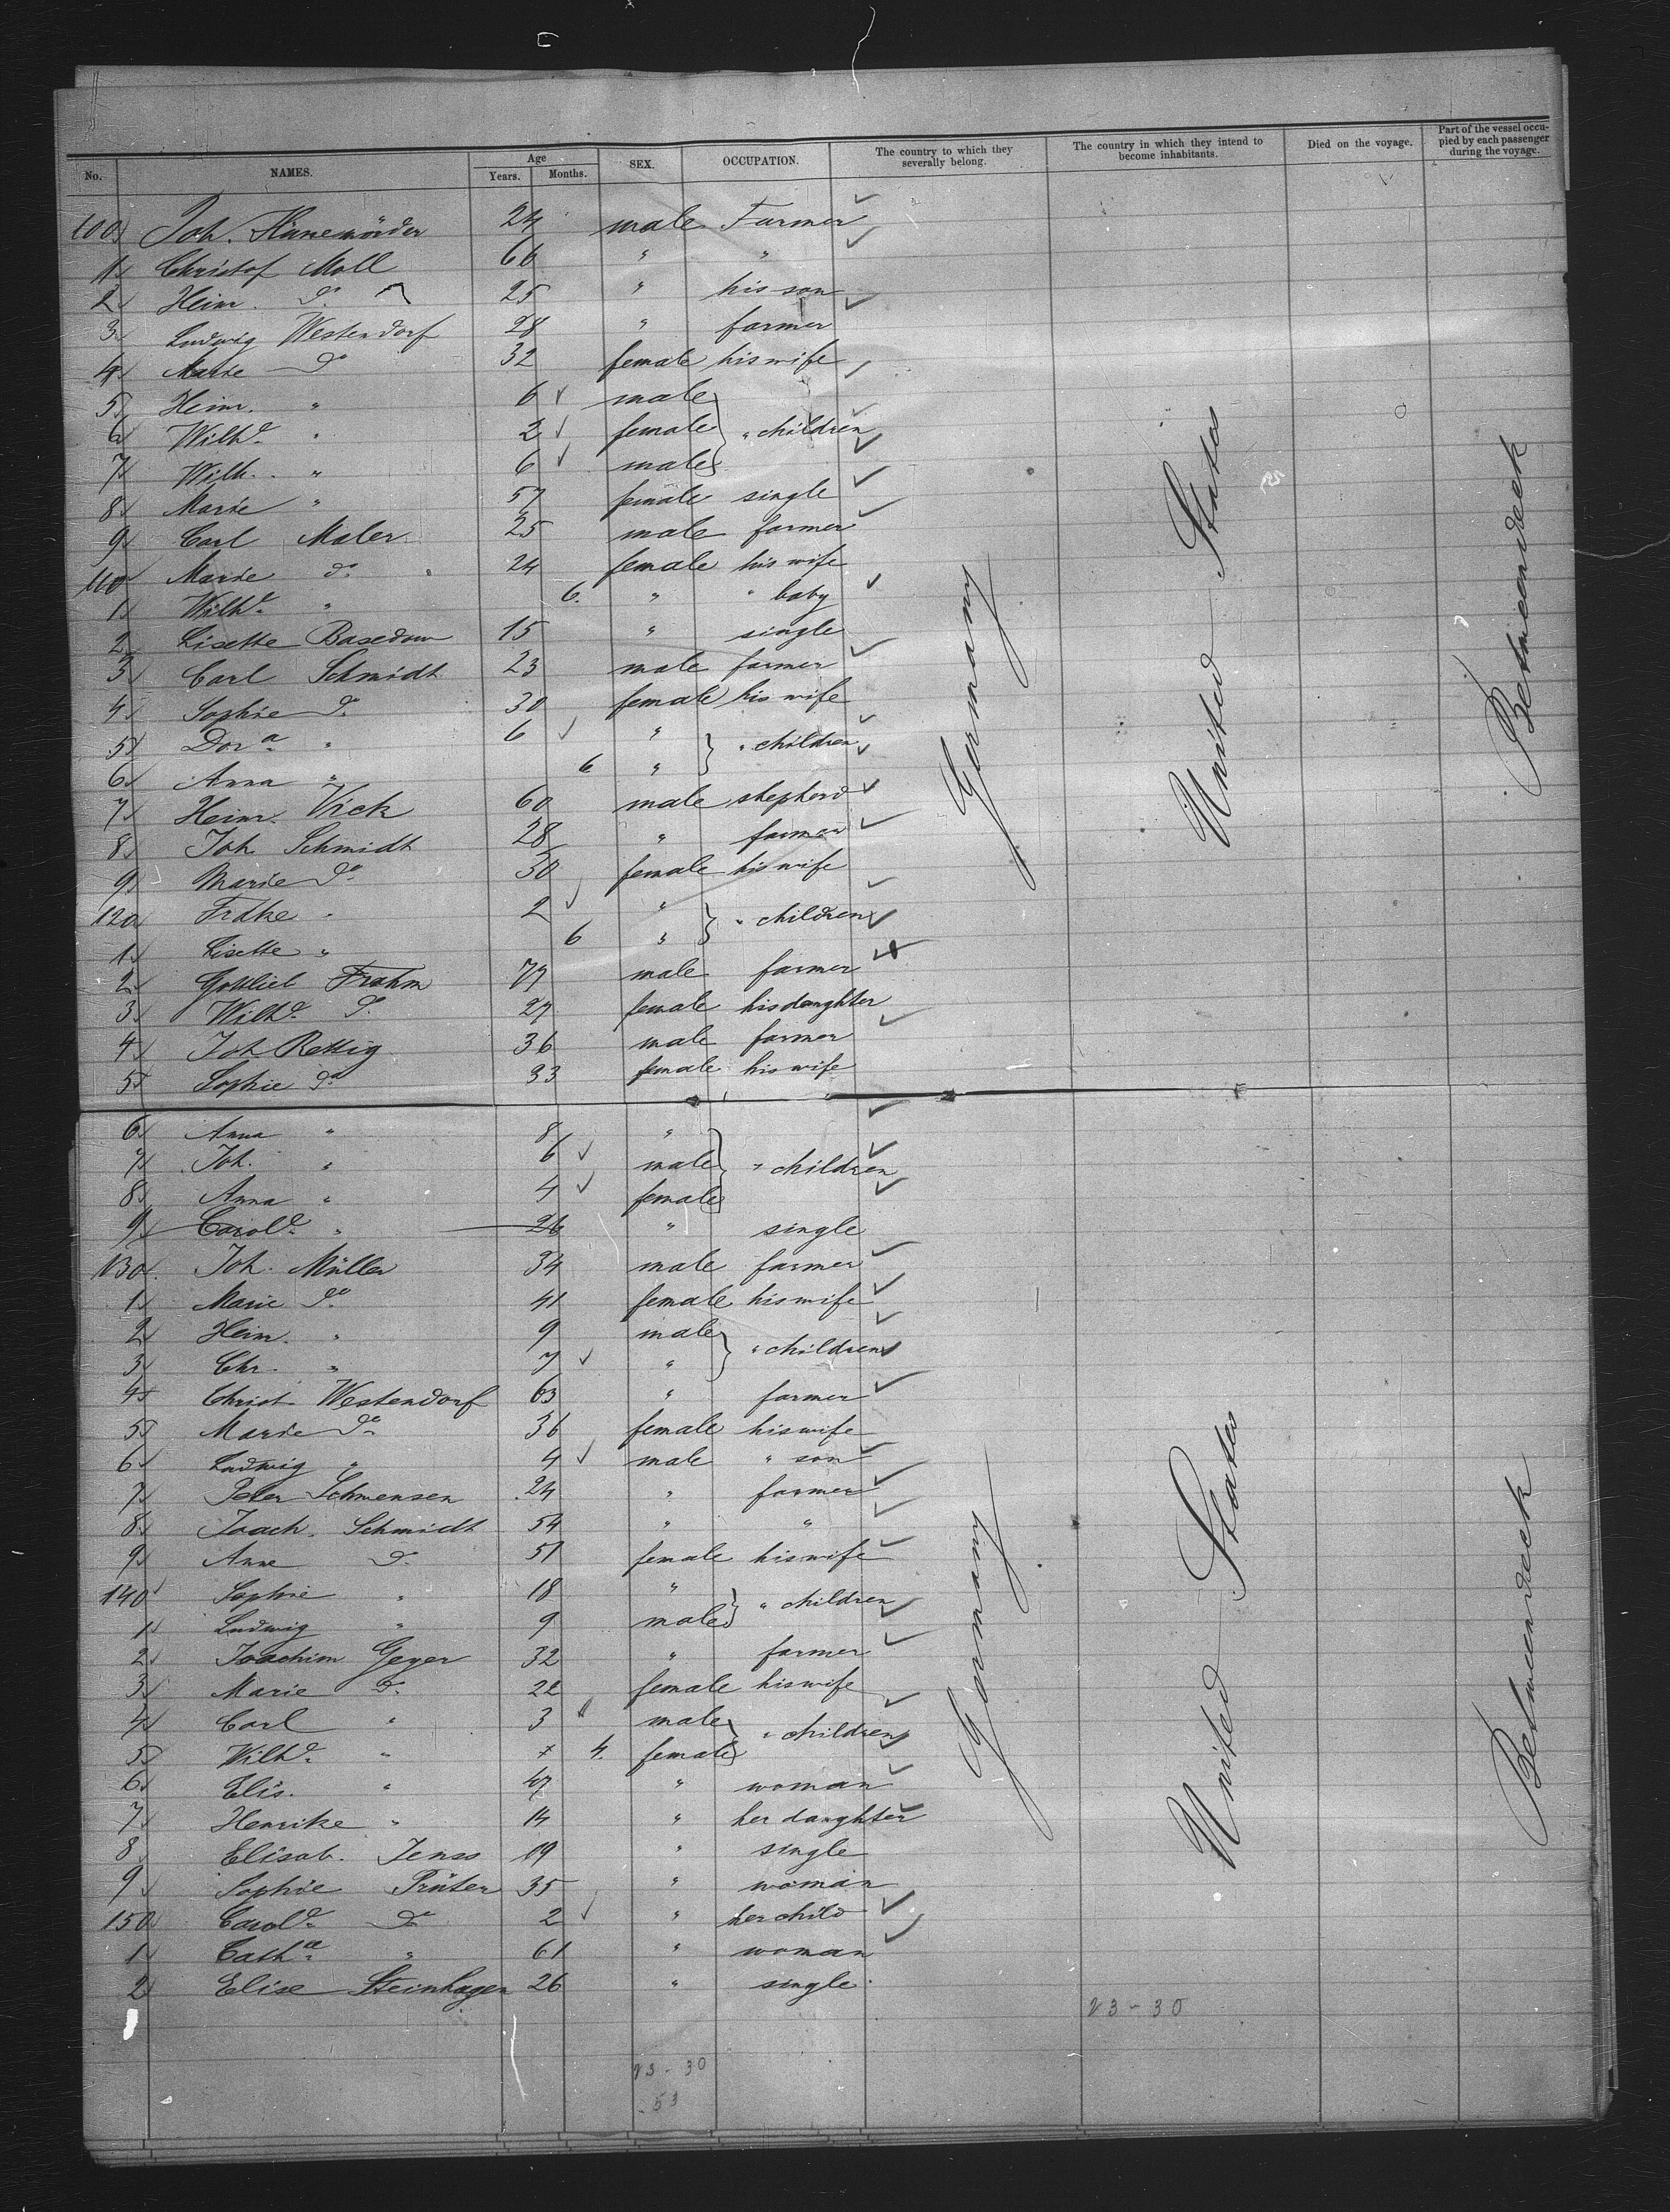 No. NAMES. Age Years. Months. SEX. OCCUPATION. The country to which they severally belong. The country in which they intend to become inhabitants. Died on the voyage. Part of the vessel occupied by each passenger during the voyage.
100 Joh. Hünemörder 24 male Farmer
1 Christof Moll 66 " "
2 Heinr. do 25 " his son
3 Ludwig Westendorf 28 " farmer
4 Marie do 32 female his wife
5 Heinr. " 6 male
6 Wilhe " 2 female " children
7 Wilh. " 6 male
8 Marie " 57 female single
9 Carl Maler 25 male farmer
110 Marie do 24 female his wife
1 Wilhe " 6 " " baby
2 Lisette Basedow 15 " single
3 Carl Schmidt 23 male farmer
4 Sophie do 30 female his wife
5 Dora " 6 " " children
6 Anna " 6 "
7 Heinr. Vick 60 male shepherd
8 Joh Schmidt 28 " farmer
9 Marie do 30 female his wife
120 Frdke " 2 " " children
1 Lisette " 6 "
2 Gottlieb Frahm 77 male farmer
3 Wilhe do 27 female his daughter
4 Joh Rettig 36 male farmer
5 Sophie do 33 female his wife
6 Anna " 8 "
7 Joh. " 6 male " children
8 Anna " 4 female
9 Carole " 26 " single
130 Joh. Müller 34 male farmer
1 Marie do 41 female his wife
2 Heinr. " 9 male " children
3 Chr. " 7 "
4 Christ. Westendorf 63 " farmer
5 Marie do 36 female his wife
6 Ludwig " 4 male " son
7 Peter Schwensen 24 " farmer
8 Joach. Schmidt 54 " "
9 Anne do 51 female his wife
140 Sophie " 18 " " children
1 Ludwig " 9 male
2 Joachim Geyer 32 " farmer
3 Marie do 22 female his wife
4 Carl " 3 male " children
5 Wilhe " 4. female
6 Elis. " 47 " woman
7 Henrike " 14 " her daughter
8 Elisab. Jenss 19 " single
9 Sophie Prüter 35 " woman
150 Carole do 2 " her child
1 Cathe " 61 " woman
2 Elise Steinhagen 26 " single
Germany
United States
Betweendeck
Germany
United States
Betweendeck
23-30
23-30
53